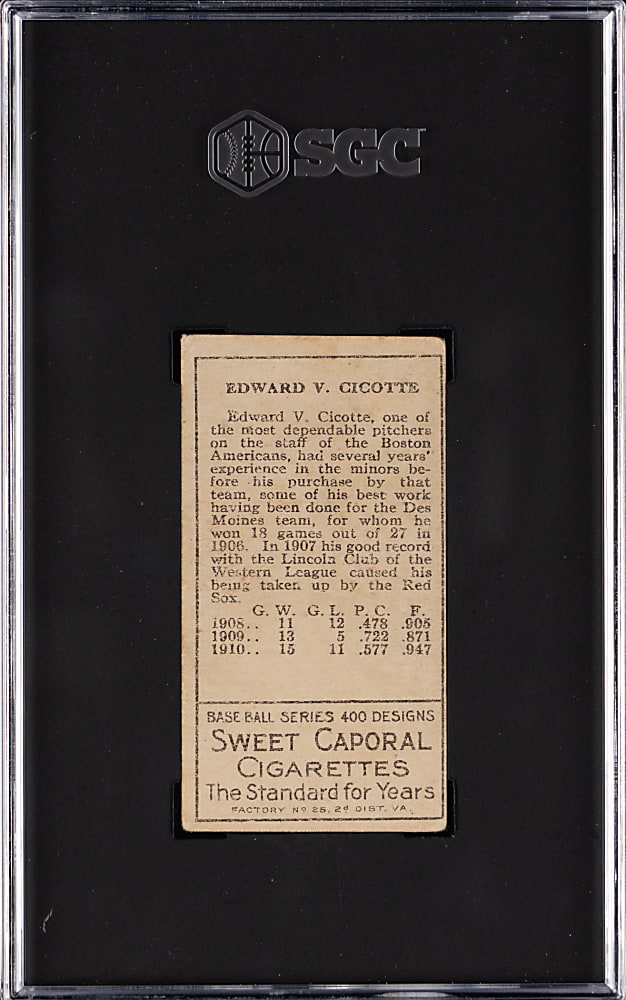 SGC
EDWARD V. CICOTTE
Edward V. Cicotte, one of
the most dependable pitchers
on the staff of the Boston
Americans, had several years'
experience in the minors be-
fore his purchase by that
team, some of his best work
having been done for the Des
Moines team, for whom he
won 18 games out of 27 in
1906. In 1907 his good record
with the Lincoln Club of the
Western League caused his
being taken up by the Red
Sox.
G. W. G. L. P. C. F.
1908.. 11 12 .478 .905
1909.. 13 5 .722 .871
1910.. 15 11 .577 .947
BASE BALL SERIES 400 DESIGNS
SWEET CAPORAL
CIGARETTES
The Standard for Years
FACTORY Nº 25, 2d DIST. VA.